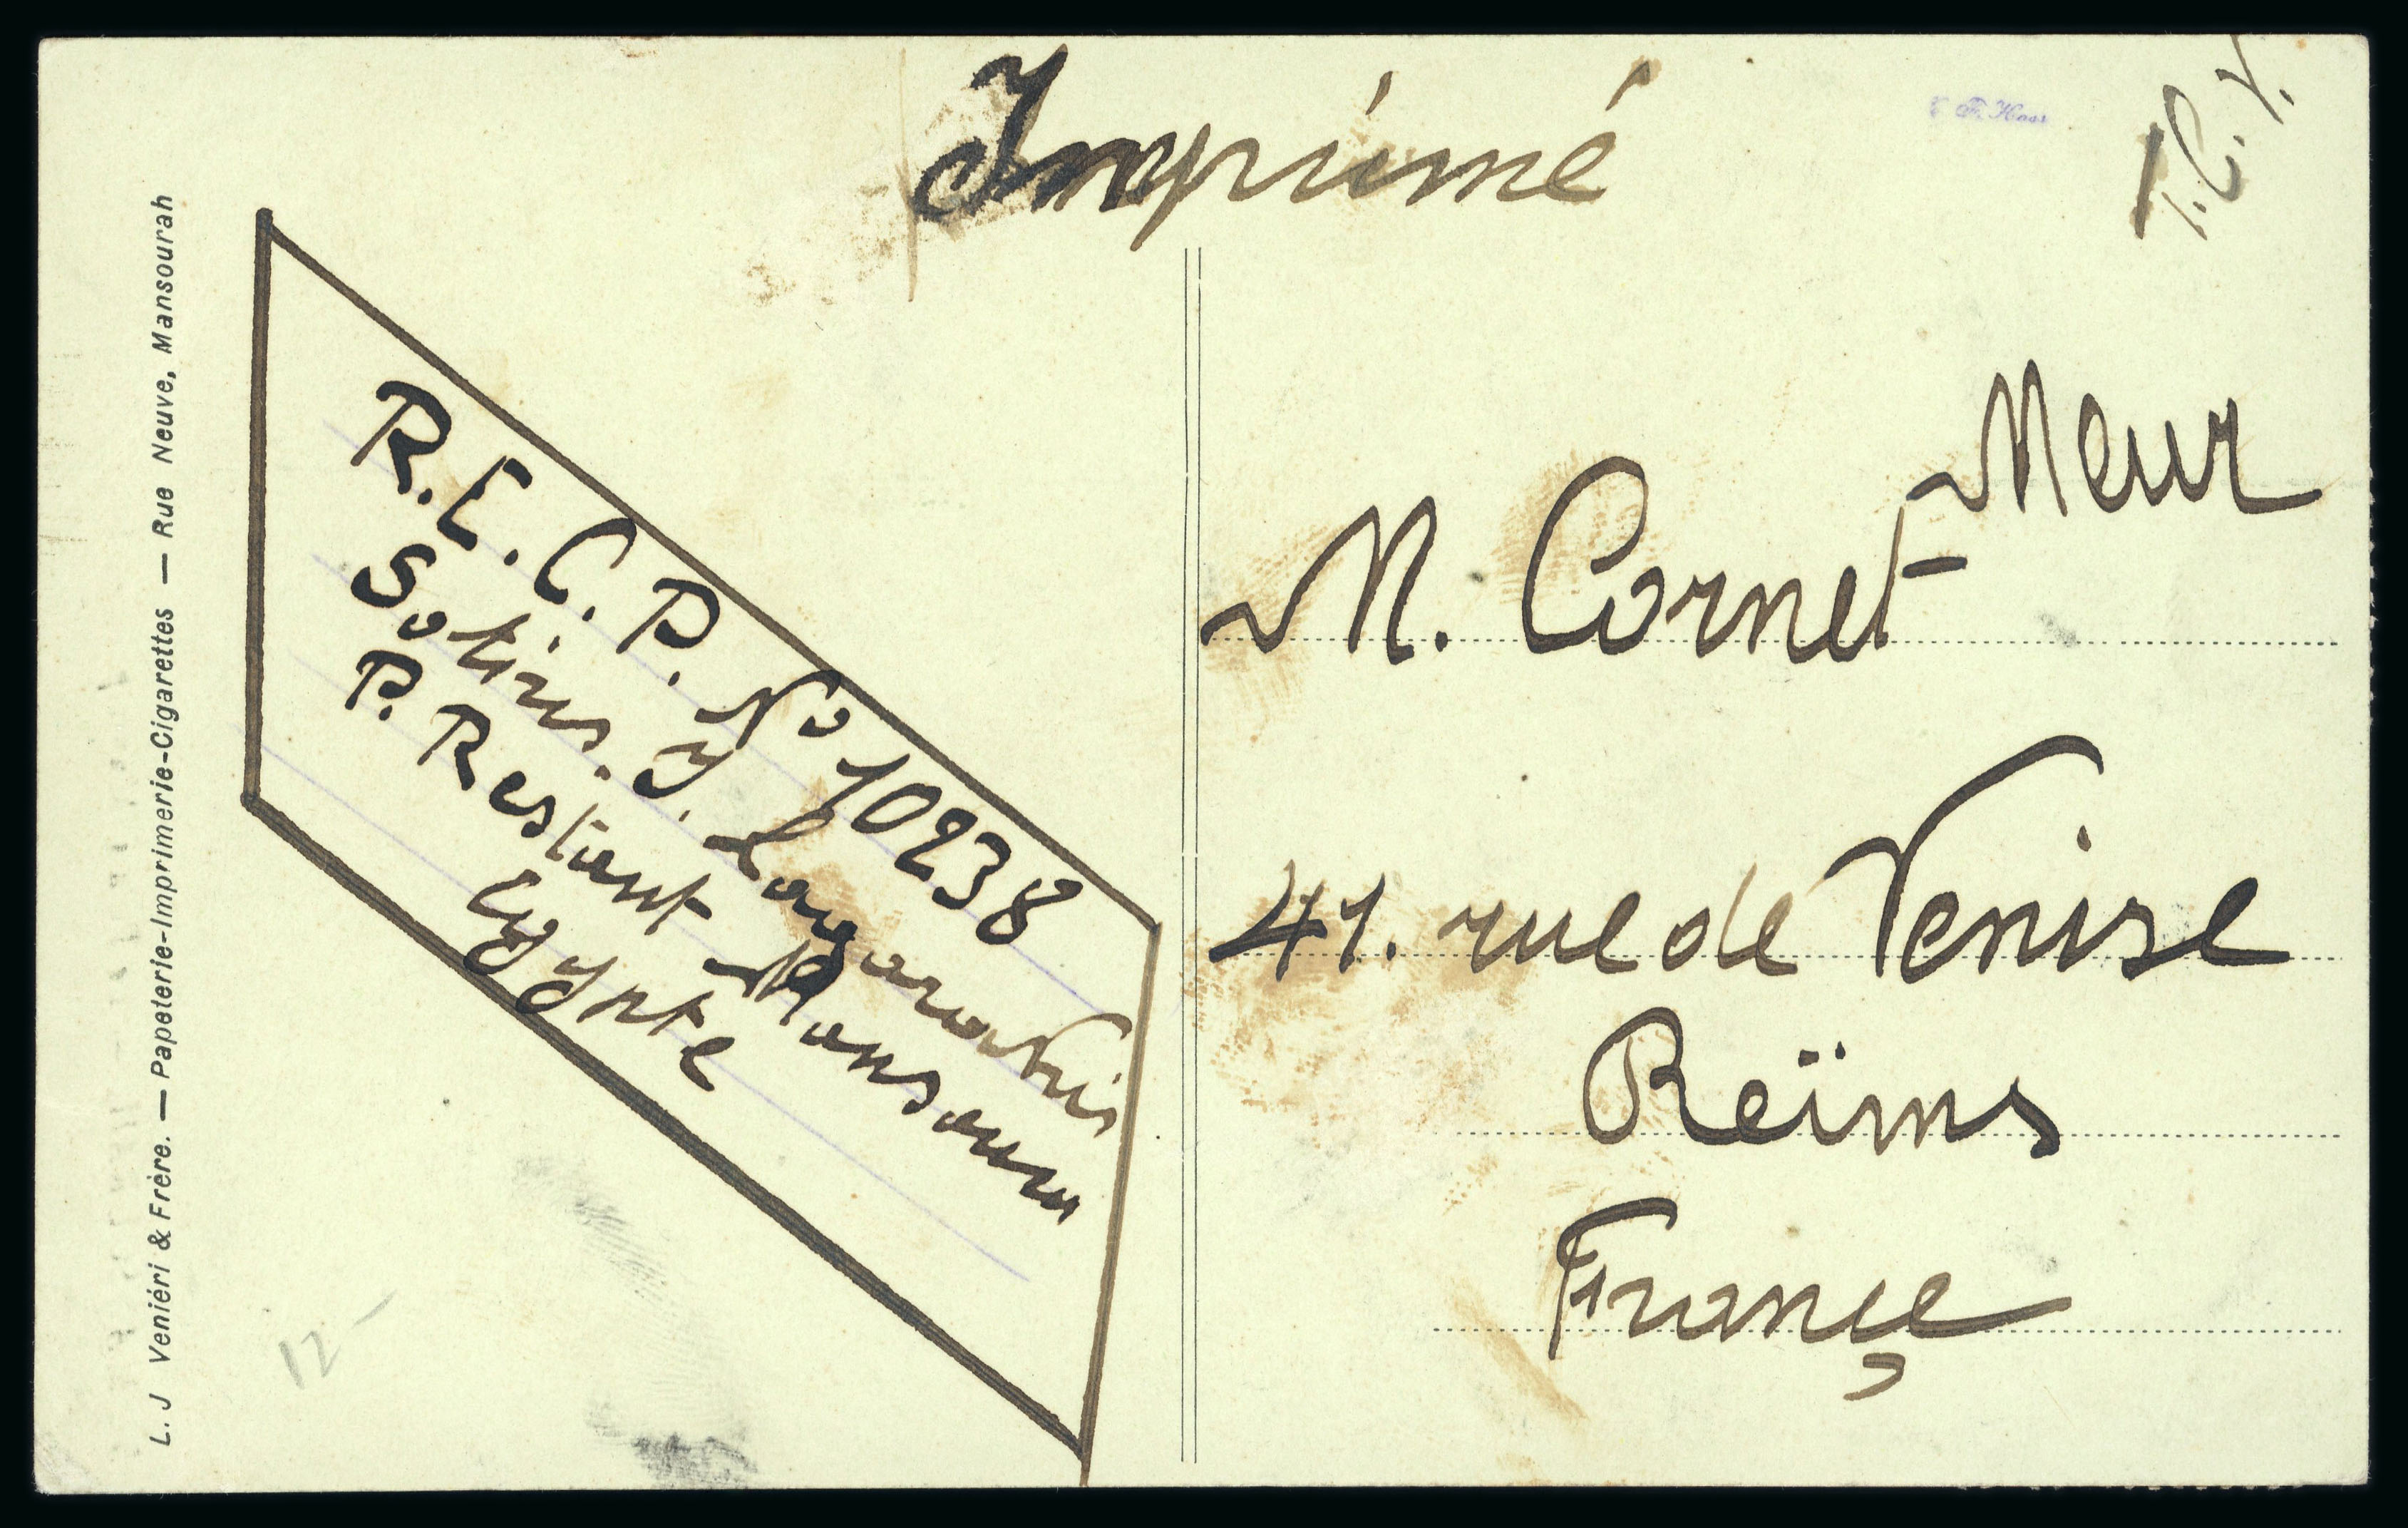 Imprimé
T.C.V.
F. Haas
L. J Veniéri & Frère. — Papeterie-Imprimerie-Cigarettes — Rue Neuve, Mansourah
R.E.C.P. No 10238
Sotirios. Y.
P. Restant Mansoura
Egypte
12-
M. Cornet Meur
41. rue de Venise
Reïms
Françe